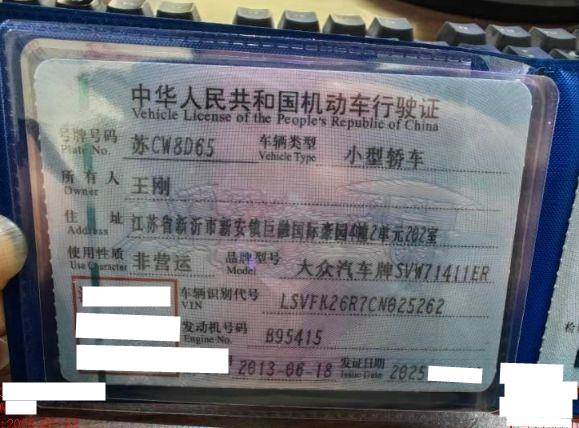 中华人民共和国机动车行驶证
Vehicle License of the People's Republic of China
号牌号码 苏CW8D65 车辆类型 小型轿车
Plate No. Vehicle Type
所有人 王刚
Owner
住址 江苏省新沂市新安镇巨融国际豪园4幢2单元202室
Address
使用性质 非营运 品牌型号 大众汽车牌SVW71411ER
Use Character Model
车辆识别代号 LSVFK26R7CN025262
VIN
发动机号码 B95415
Engine No.
2013-06-18 发证日期 2025
Issue Date